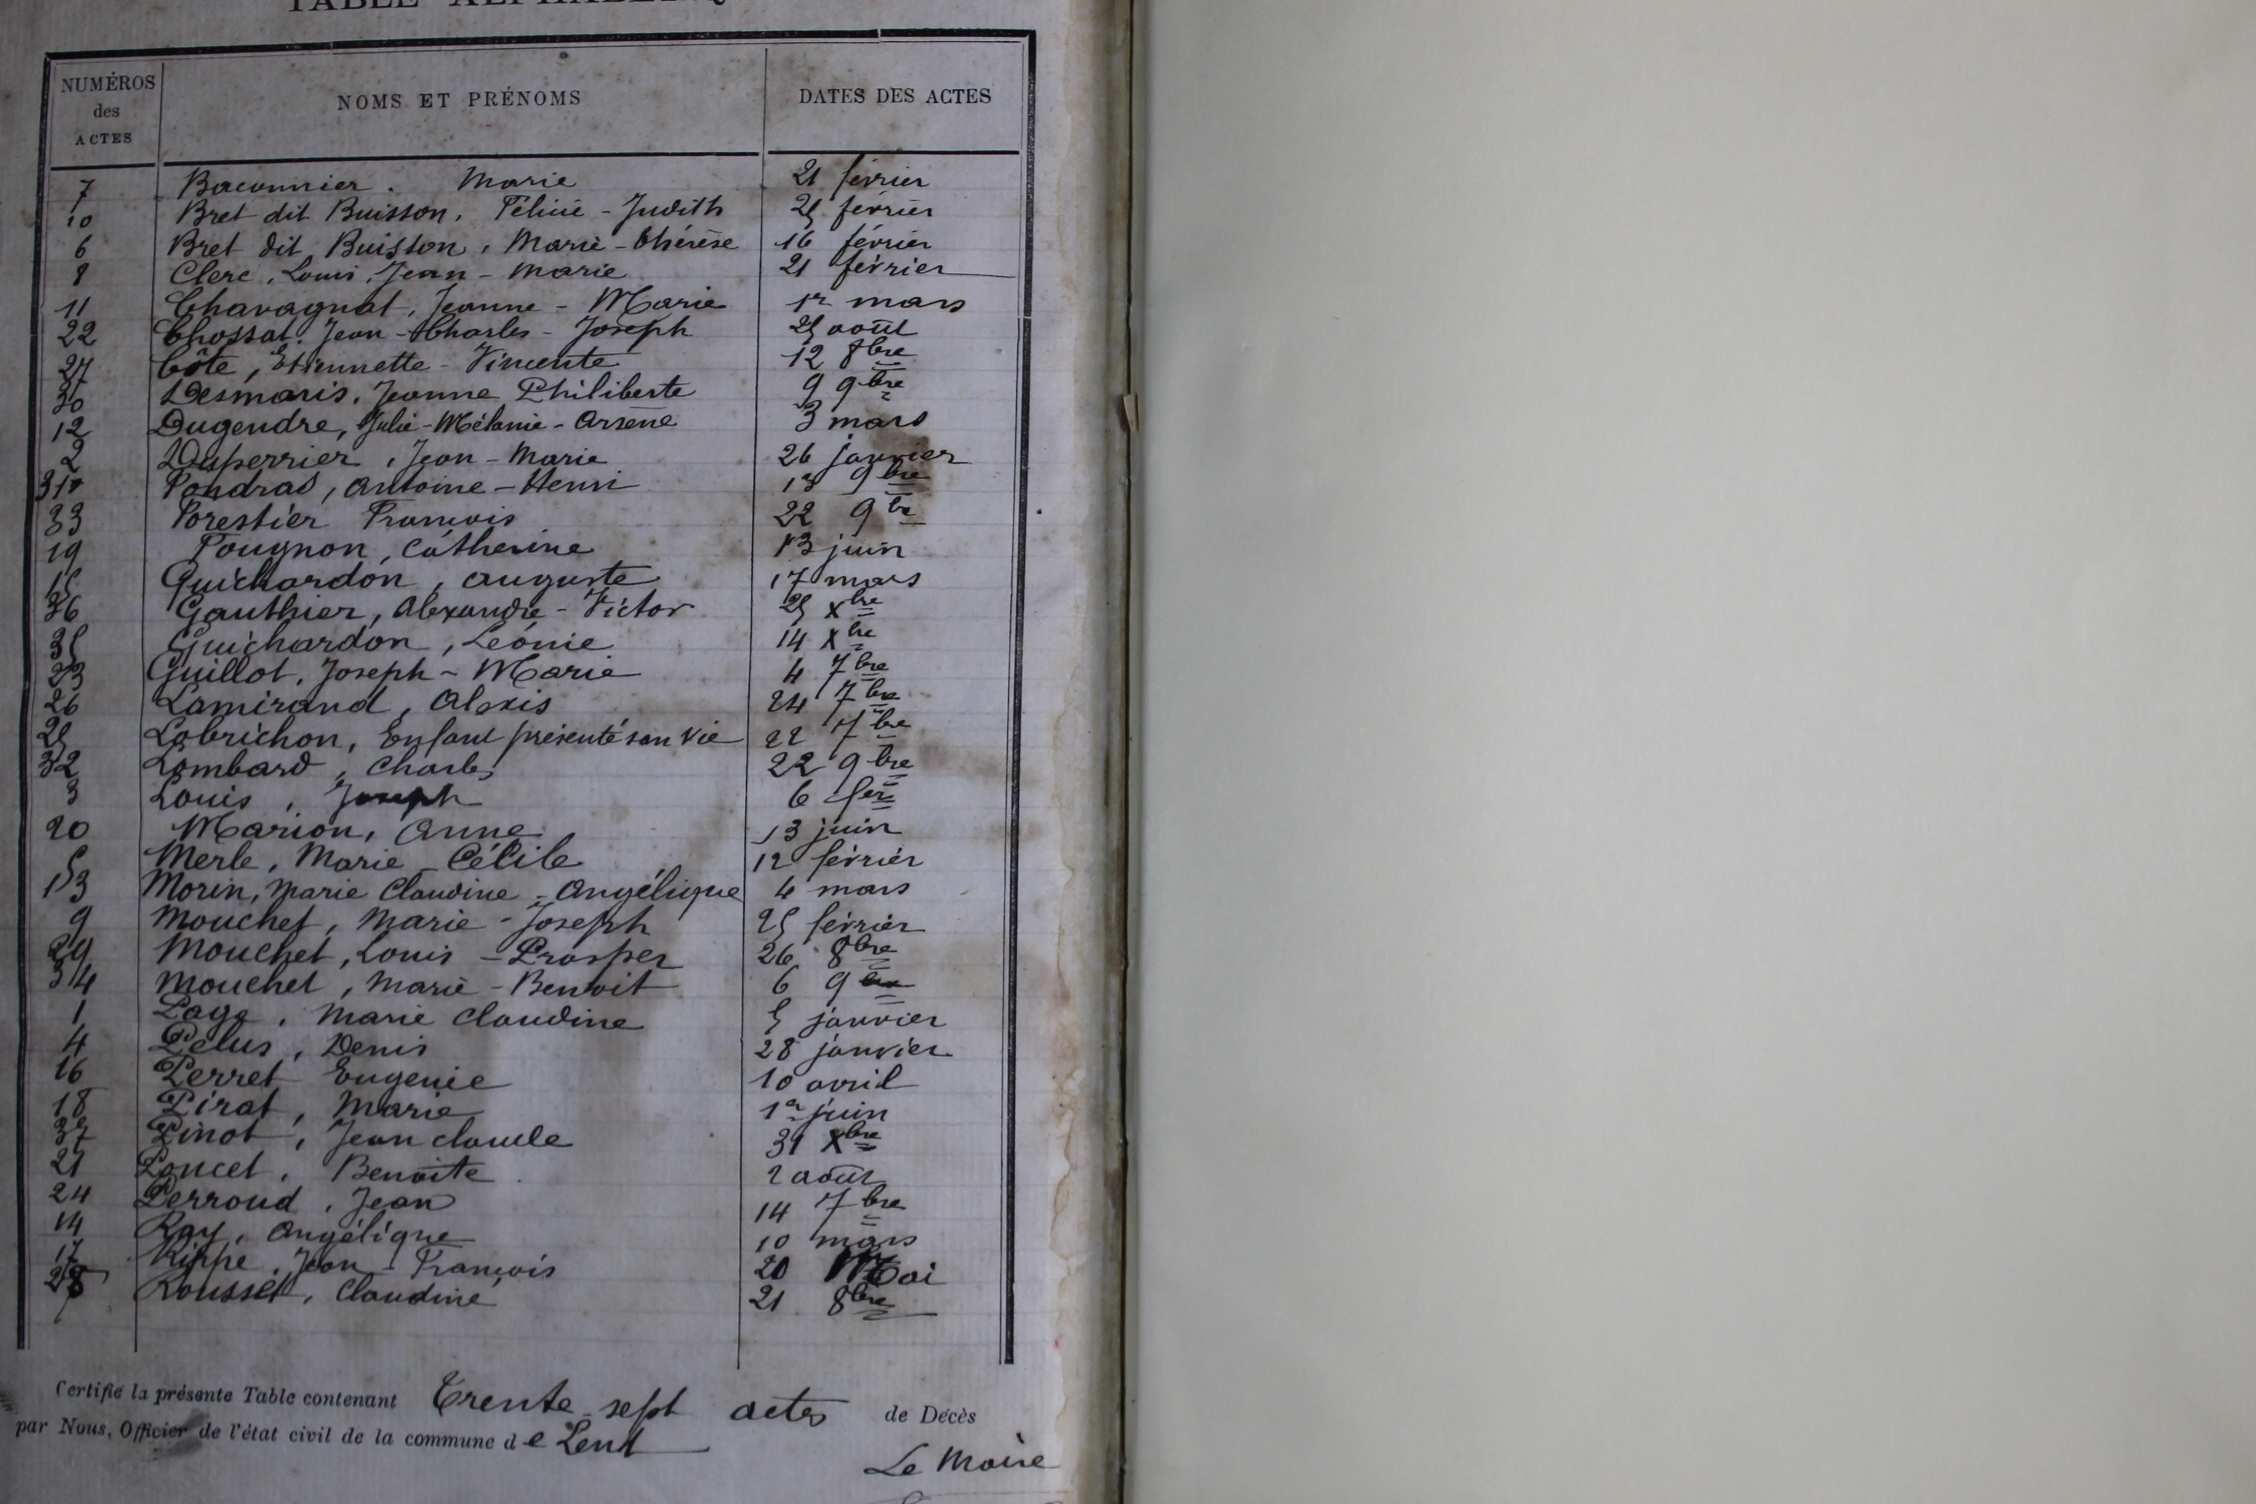 TABLE ALPHABÉTIQ
NUMÉROS des ACTES NOMS ET PRÉNOMS DATES DES ACTES
7 Baconnier. Marie 21 février
10 Bret dit Buisson, Félicie - Judith 25 février
6 Bret dit Buisson, Marie - Thérèse 16 février
8 Clerc, Louis, Jean - Marie 21 février
11 Chavagnat, Jeanne - Marie 1r mars
22 Chossat. Jean - Charles - Joseph 25 août
27 Côte, Etiennette - Vincente 12 8bre
30 Desmaris, Jeanne Philiberte 9 9bre
12 Dugendre, Julie - Mélanie - Arsène 3 mars
2 Duperrier, Jean - Marie 26 janvier
31 Fondras, Antoine - Henri 13 9bre
33 Forestier François 22 9bre
19 Fougnon, Catherine 13 juin
15 Guichardon, Auguste 17 mars
36 Gauthier, Alexandre - Victor 25 Xbre
35 Guichardon, Léonie 14 Xbre
23 Guillot, Joseph - Marie 4 7bre
26 Lamirand, Alexis 24 7bre
25 Labrichon, Enfant présenté san vie 22 7bre
32 Lombard, Charles 22 9bre
3 Louis, Joseph 6 fer
20 Marion, Anne 13 juin
5 Merle, Marie - Célile 12 février
13 Morin, Marie Claudine - Angélique 4 mars
9 Mouchet, Marie - Joseph 25 février
29 Mouchet, Louis - Prosper 26 8bre
34 Mouchet, Marie - Benoit 6 9bre
1 Page, Marie Claudine 5 janvier
4 Pelus, Denis 28 janvier
16 Perret Eugenie 10 avril
18 Pirat, Marie 1er juin
37 Pinot, Jean claude 31 Xbre
21 Poncet, Benoite 2 août
24 Perroud, Jean 14 7bre
14 Ray, Angélique 10 mars
17 Rippe, Jean - François 20 Mai
28 Rousset, Claudine 21 8bre
Certifié la présente Table contenant Trente - sept actes de Décès
par Nous, Officier de l'état civil de la commune de Lent
Le Maire